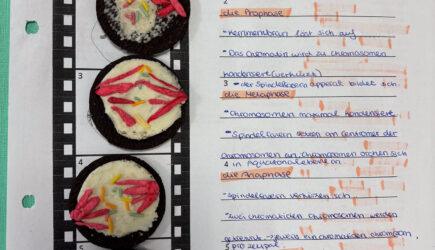 2
die Prophase
- Kernmembran löst sich auf
- Das Chromatin wird zu Chromosomen
kondensiert (verkürzt)
3 - der Spindelfaserapparat bildet sich
die Metaphase
- Chromosomen maximal kondensiert
- Spindelfasern setzen an Centromer der
Chromosomen an, Chromosomen ordnen sich
4 in Äquatorialebene an
die Anaphase
- Spindelfasern verkürzen sich
- zwei chromatiden chromosomen werden
getrennt → jeweils ein chromatiden chromosom
5 pro Zellpol
3
4
5